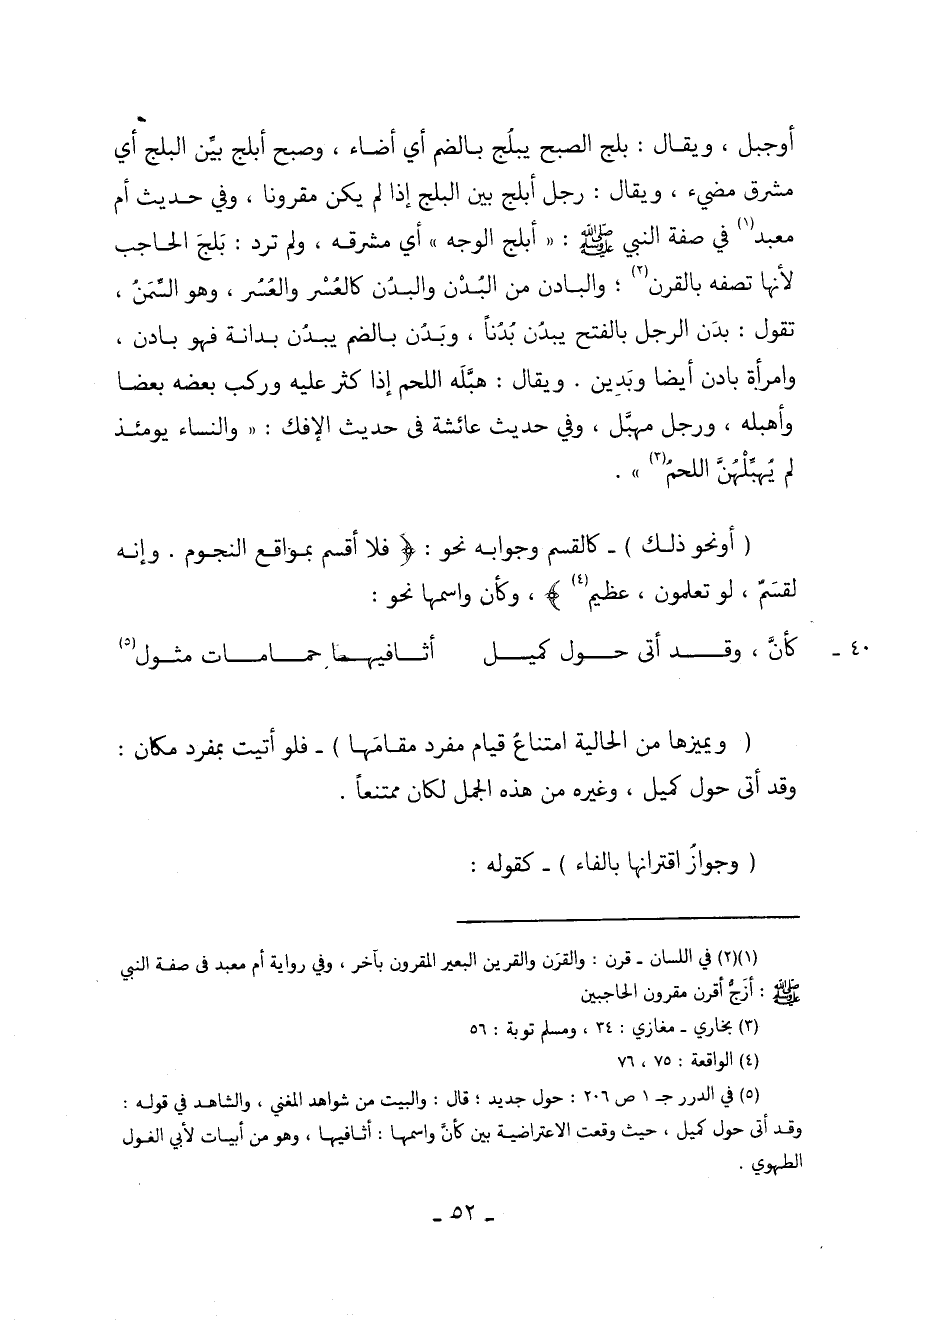 أوجبل ، ويقال : بلج الصبح يبلُج بالضم أي أضاء ، وصبح أبلج بيِّن البلج أي
مشرق مضيء ، ويقال : رجل أبلج بين البلج إذا لم يكن مقرونا ، وفي حديث أم
معبد(١) في صفة النبي ﷺ : « أبلج الوجه » أي مشرقه ، ولم ترد : بَلجَ الحاجب
لأنها تصفه بالقرن(٢) ؛ والبادن من البُدْن والبدُن كالعُسْر والعُسُر ، وهو السِّمَنُ ،
تقول : بدَن الرجل بالفتح يبدُن بُدْناً ، وبَدُن بالضم يبدُن بدانة فهو بادن ،
وامرأة بادن أيضا وبَدِين . ويقال : هبَّله اللحم إذا كثر عليه وركب بعضه بعضا
وأهبله ، ورجل مهبَّل ، وفي حديث عائشة فى حديث الإفك : « والنساء يومئذ
لم يُهبِّلْهُنَّ اللحمُ(٣) » .
( أونحو ذلك ) ـ كالقسم وجوابه نحو : ﴿ فلا أقسم بمواقع النجوم . وإنه
لقسَمٌ ، لو تعلمون ، عظيم(٤) ﴾ ، وكأن واسمها نحو :
٤٠ ـ كأنَّ ، وقد أتى حول كميل أثافيهما حمامات مثول(٥)
( ويميزها من الحالية امتناعُ قيام مفرد مقامَها ) ـ فلو أتيت بمفرد مكان :
وقد أتى حول كميل ، وغيره من هذه الجمل لكان ممتنعاً .
( وجوازُ اقترانها بالفاء ) ـ كقوله :
(١)(٢) في اللسان ـ قرن : والقرَن والقرين البعير المقرون بآخر ، وفي رواية أم معبد فى صفة النبي
ﷺ : أزَجُّ أقرن مقرون الحاجبين
(٣) بخاري ـ مغازي : ٣٤ ، ومسلم توبة : ٥٦
(٤) الواقعة : ٧٥ ، ٧٦
(٥) في الدرر جـ ١ ص ٢٠٦ : حول جديد ؛ قال : والبيت من شواهد المغني ، والشاهد في قوله :
وقد أتى حول كميل ، حيث وقعت الاعتراضية بين كأنَّ واسمها : أثافيها ، وهو من أبيات لأبي الغول
الطهوي .
ـ ٥٢ ـ